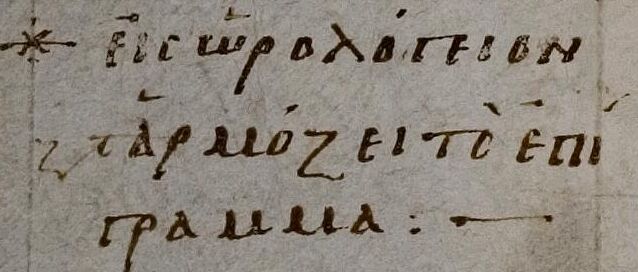 ※ εἰς ὡρολόγειον
ἁρμόζει τὸ ἐπί
γραμμα : —